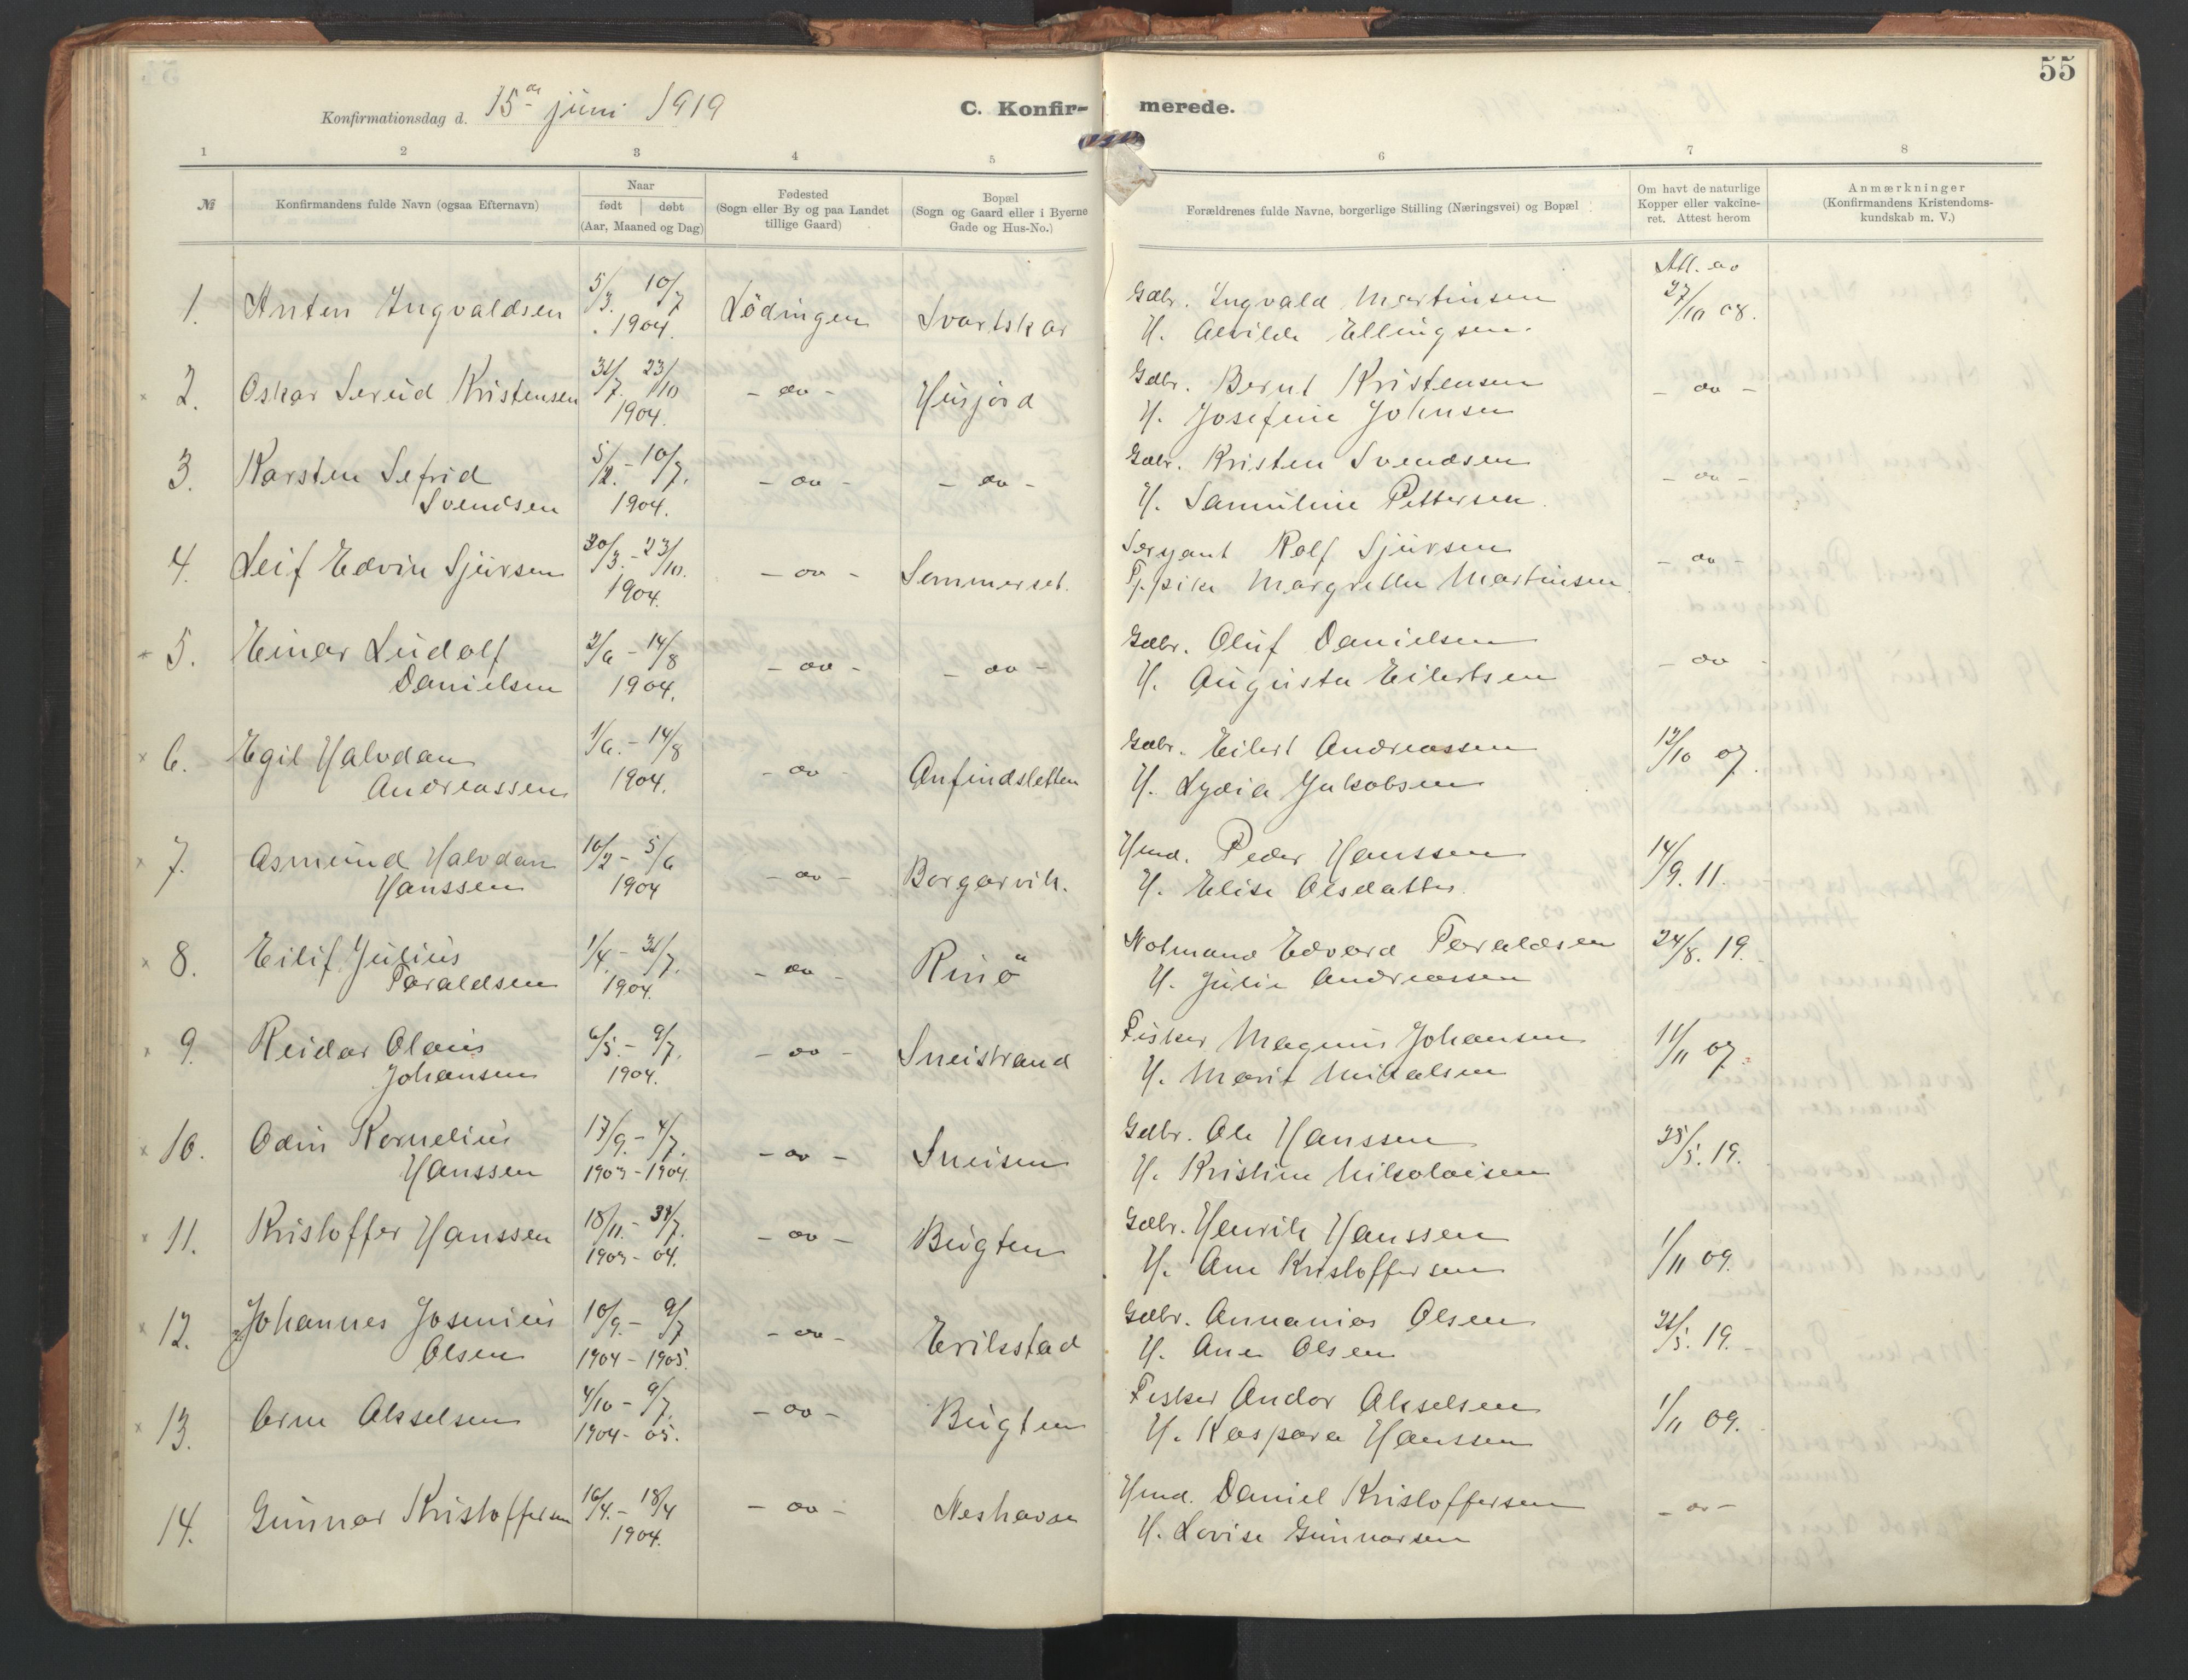 55
Konfirmationsdag d. 15de juni 1919
C. Konfir- merede.
1 2 3 4 5 6 7 8
№
Konfirmandens fulde Navn (ogsaa Efternavn)
Naar
født | døbt
(Aar, Maaned og Dag)
Fødested
(Sogn eller By og paa Landet
tillige Gaard)
Bopæl
(Sogn og Gaard eller i Byerne
Gade og Hus-No.)
Forældrenes fulde Navne, borgerlige Stilling (Næringsvei) og Bopæl
Om havt de naturlige
Kopper eller vakcine-
ret. Attest herom
Anmærkninger
(Konfirmandens Kristendoms-
kundskab m. V.)
1. Anten Ingvaldsen 5/3. 10/7 1904. Lödingen Svartskar
Gdbr. Ingvald Martinsen
H. Alvilde Ellingsen.
Att. av 27/10 08.
2. Oskar Serud Kristensen 31/7. 23/10 1904. - do - Husjord
Gdbr. Bernt Kristensen
H. Josefine Johnsen
- do -
3. Karsten Sefrid
Svendsen
5/2. - 10/7. 1904. - do - - do -
Gdbr. Kristen Svendsen
H. Samuline Pettersen.
- do -
4. Leif Edvin Sjursen 30/3. - 23/10. 1904. - do - Semmerset.
Sersjant Rolf Sjursen
Margrethe Martinsen
- do -
5. Einar Ludolf
Danielsen
2/6 - 14/8 1904. - do - - do -
Gdbr. Oluf Danielsen
H. Augusta Eilertsen
- do
6. Egil Halvdan
Andreassen
1/6. - 14/8 1904. - do - Anfindsletten
Gdbr. Eilert Andreassen
H. Lydia Jakobsen
12/10 07.
7. Asmund Halvdan
Hanssen
16/2 - 5/6 1904 - do - Borgarvik.
Hmd. Peder Hanssen
H. Elise Olsdatter.
14/9. 11.
8. Eilif Julius
Taraldsen
1/4. - 31/7. 1904. - do - Rinö
Notmand Edvard Taraldsen
H. Julie Andreassen
24/8. 19.
9. Reidar Olaus
Johansen
6/5. - 9/7. 1904. - do - Sneistrand
Fisker Magnus Johansen
H. Marit Mikalsen
11/11 07.
10. Odin Kornelius
Hanssen
17/9. - 4/7. 1903 - 1904. - do - Sneisen
Gdbr. Ole Hanssen
H. Kristine Nikolaisen
25/5. 19.
11. Kristoffer Hanssen 18/11. - 31/7. 1903 - 04. - do - Bugten
Gdbr. Henrik Hanssen
H. Ane Kristoffersen
1/11 09.
12. Johannes Josenius
Olsen
10/9. - 9/7 1904 - 1905. - do - Erikstad
Gdbr. Annanias Olsen
H. Ane Olsen
31/5. 19.
13. Arne Akselsen 4/10 - 9/7. 1904 - 05. - do - Bugten
Fisker Andor Akselsen
H. Kaspara Hanssen
1/11 09.
14. Gunnar Kristoffersen 16/4. - 18/4 1904. - do - Neshavn
Hmd. Daniel Kristoffersen
H. Lovise Gunnarsen
- do -